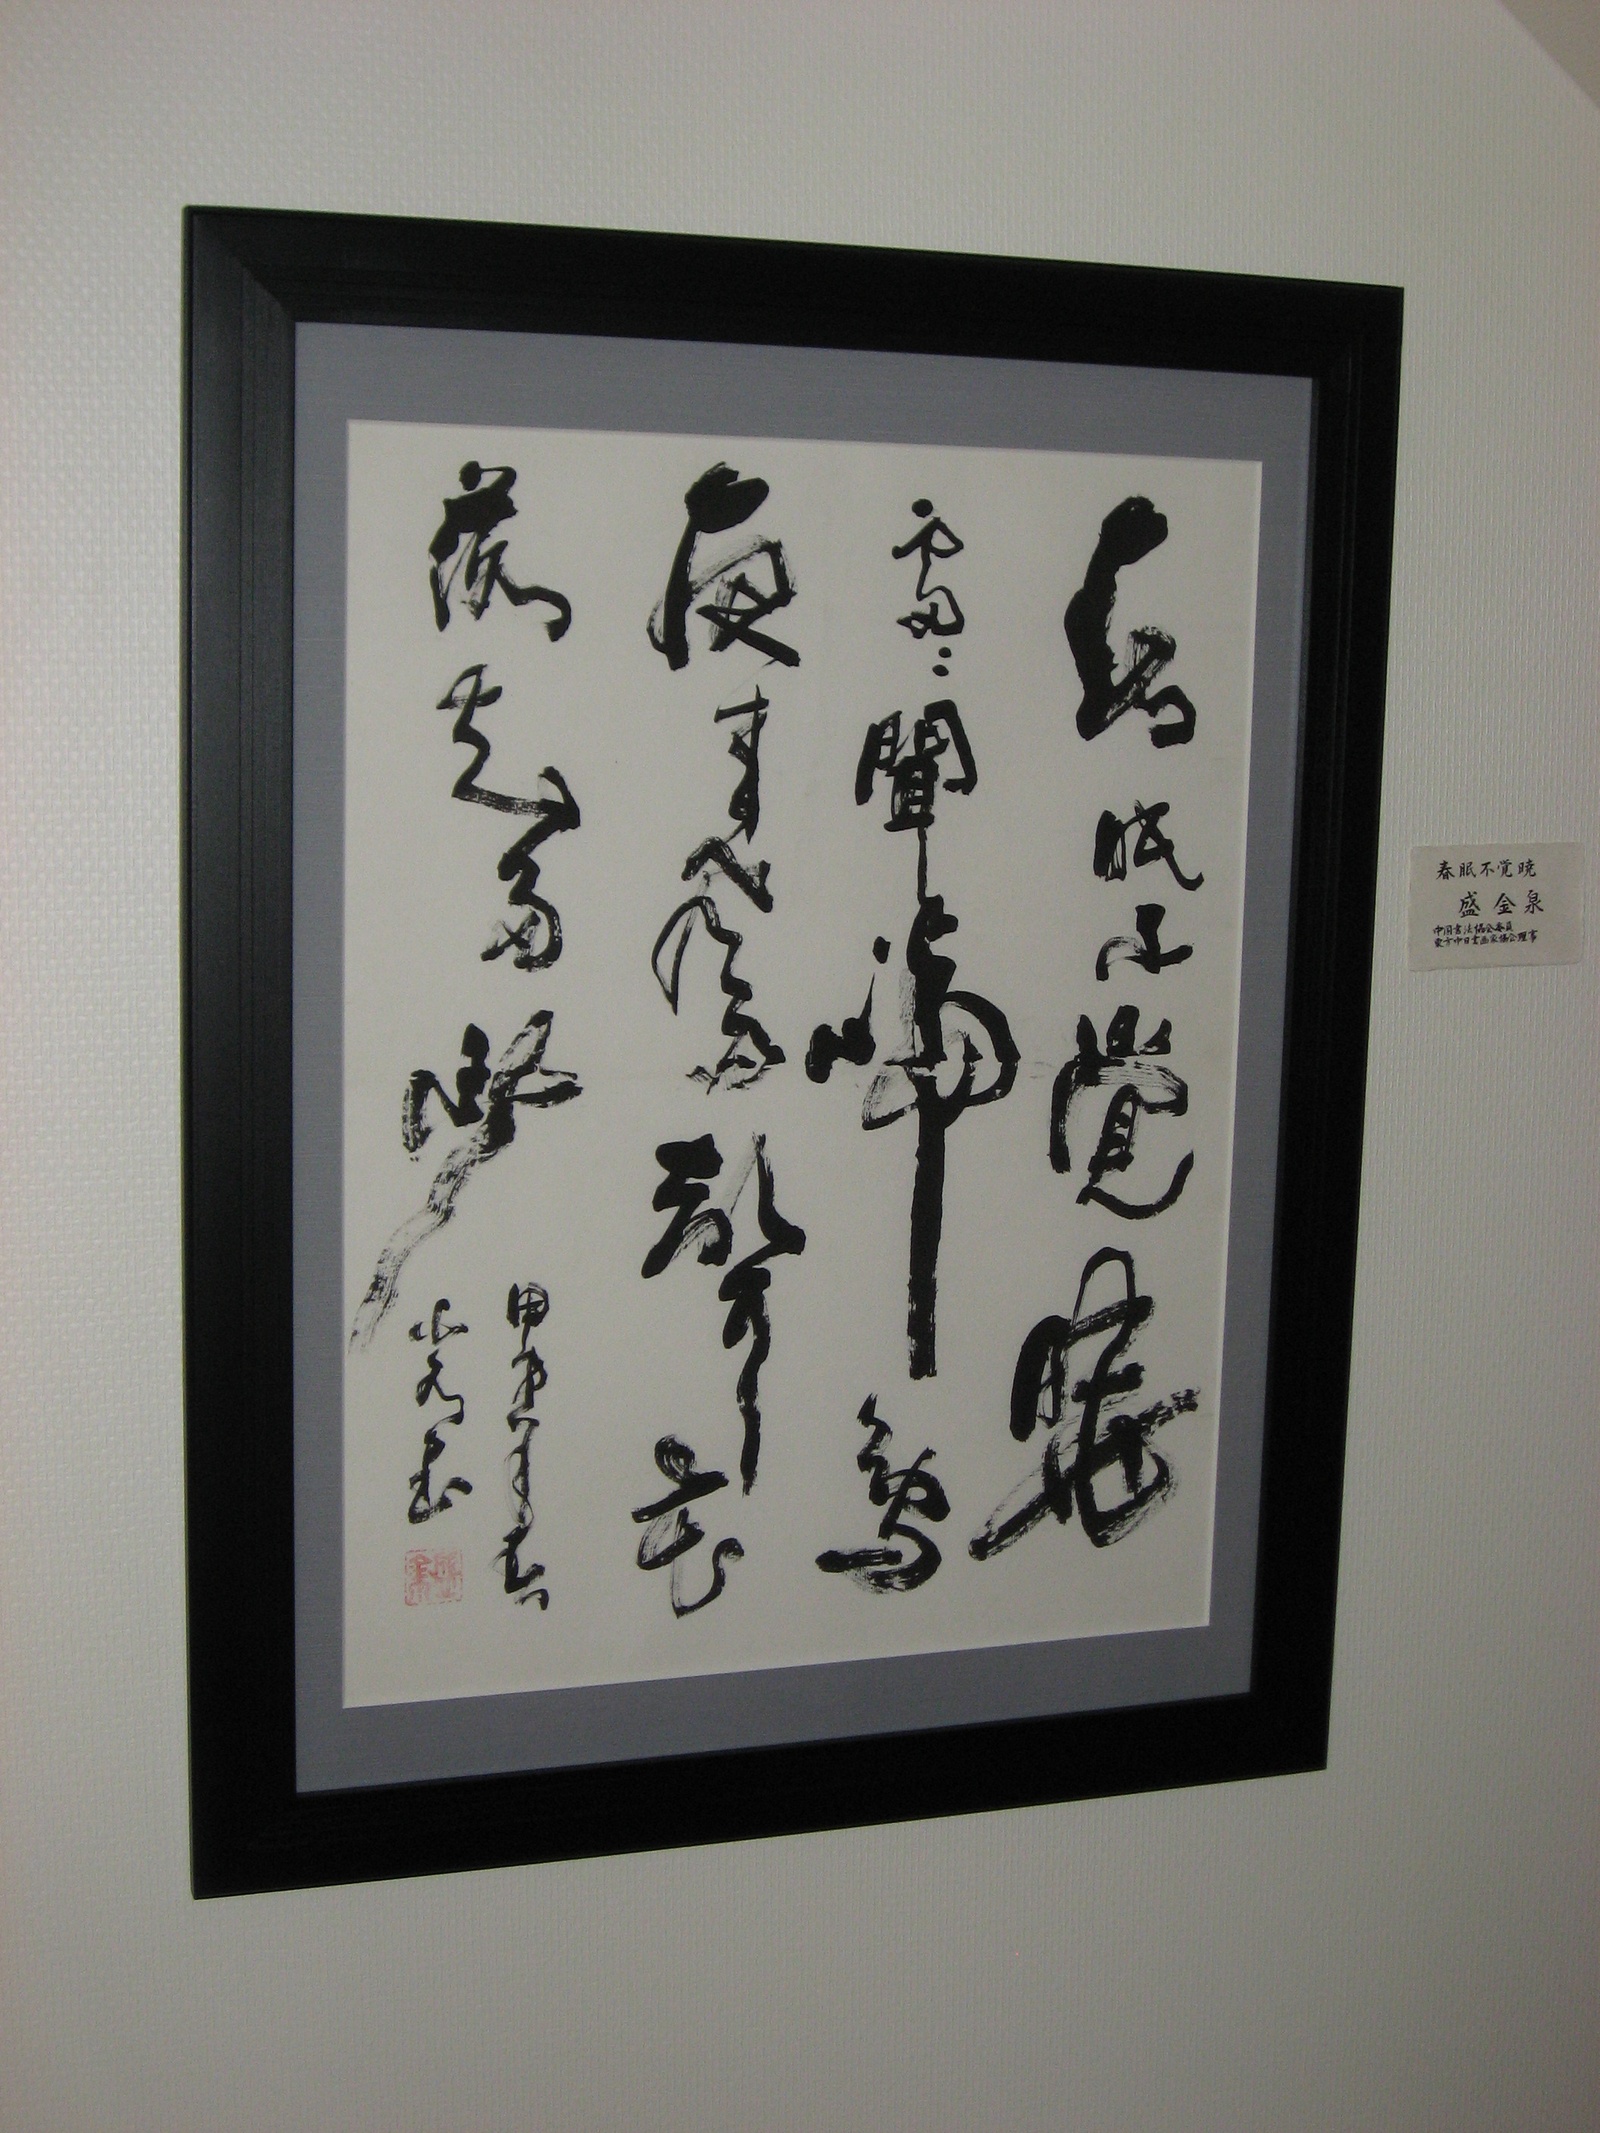 春眠不覺曉
處々聞啼鳥
夜来風雨聲花
落知多少
甲申年春
春眠不覚暁
盛金泉
中国書法協会委員
東方中日書画家協会理事